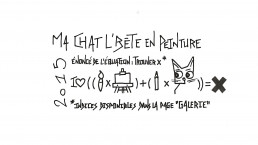 MA CHAT L'BÊTE EN PEINTURE
2015
ÉNONCÉ DE L'ÉQUATION: TROUVER X*
I♡((x)+(x))=X
*INDICES DISPONIBLES DANS LA PAGE "GALERIE"